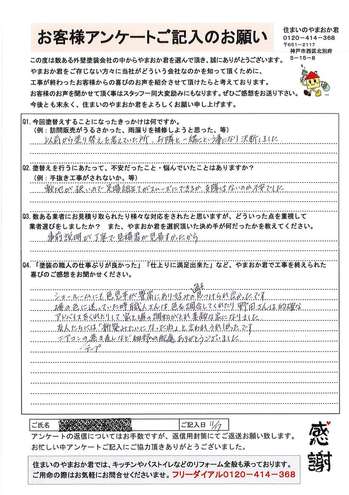 お客様アンケートご記入のお願い
住まいのやまおか君
0120-414-368
〒651-2117
神戸市西区北別府
5-15-8
この度は数ある外壁塗装会社の中からやまおか君を選んで頂き、誠にありがとうございます。
やまおか君をご存じない方々に当社がどういう会社なのかを知って頂くために、
工事が終わったお客様からの喜びのお声を紹介させて頂けたらと考えております。
お客様のお声を聞かせて頂く事はスタッフ一同大変励みにもなります。ぜひご感想をお送り下さい。
今後とも末永く、住まいのやまおか君をよろしくお願い申し上げます。
Q1. 今回塗替えすることになったきっかけは何ですか。
(例：訪問販売がうるさかった、雨漏りを補修しようと思った、等)
以前から塗り替えを考えていた所、お隣と一緒にという事になり決断しました
Q2. 塗替えを行うにあたって、不安だったこと・悩んでいたことはありますか？
(例：手抜き工事がされないか、等)
敷地が狭いので足場組立てがスムーズにできるか、支障はないのか不安でした
Q3. 数ある業者にお見積り取られたり様々な対応をされたと思いますが、どういった点を重視して
業者選びをしましたか？ また、やまおか君を選択頂いた決め手が何だったかを教えてください。
事前説明が丁寧で見積書が見易すかったから
Q4. 「塗装の職人の仕事ぶりが良かった」「仕上りに満足出来た」など、やまおか君で工事を終えられた
喜びのご感想をお聞かせください。
ショールームにも色見本が豊富にあり好みの色つけられ
色に迷っていた時職人さんは色を調合してくれたり野田さんは的確な
アドバイスをくれたりして家と塀の調和がとれ素敵な家になりました
友人たちには「新築みたいになったね」と言われうれしかったです
エアコンの
テープ
配慮ありがとうございました
ご氏名
ご記入日
11/7
アンケートの返信についてはお手数ですが、返信用封筒にてご返送お願い致します。
お忙しい中アンケートご記入にご協力頂きありがとうございました。
感謝
住まいのやまおか君では、キッチンやバストイレなどのリフォーム全般も承っております。
ご用命の際はお気軽にお問合せくださいませ。フリーダイアル0120-414-368